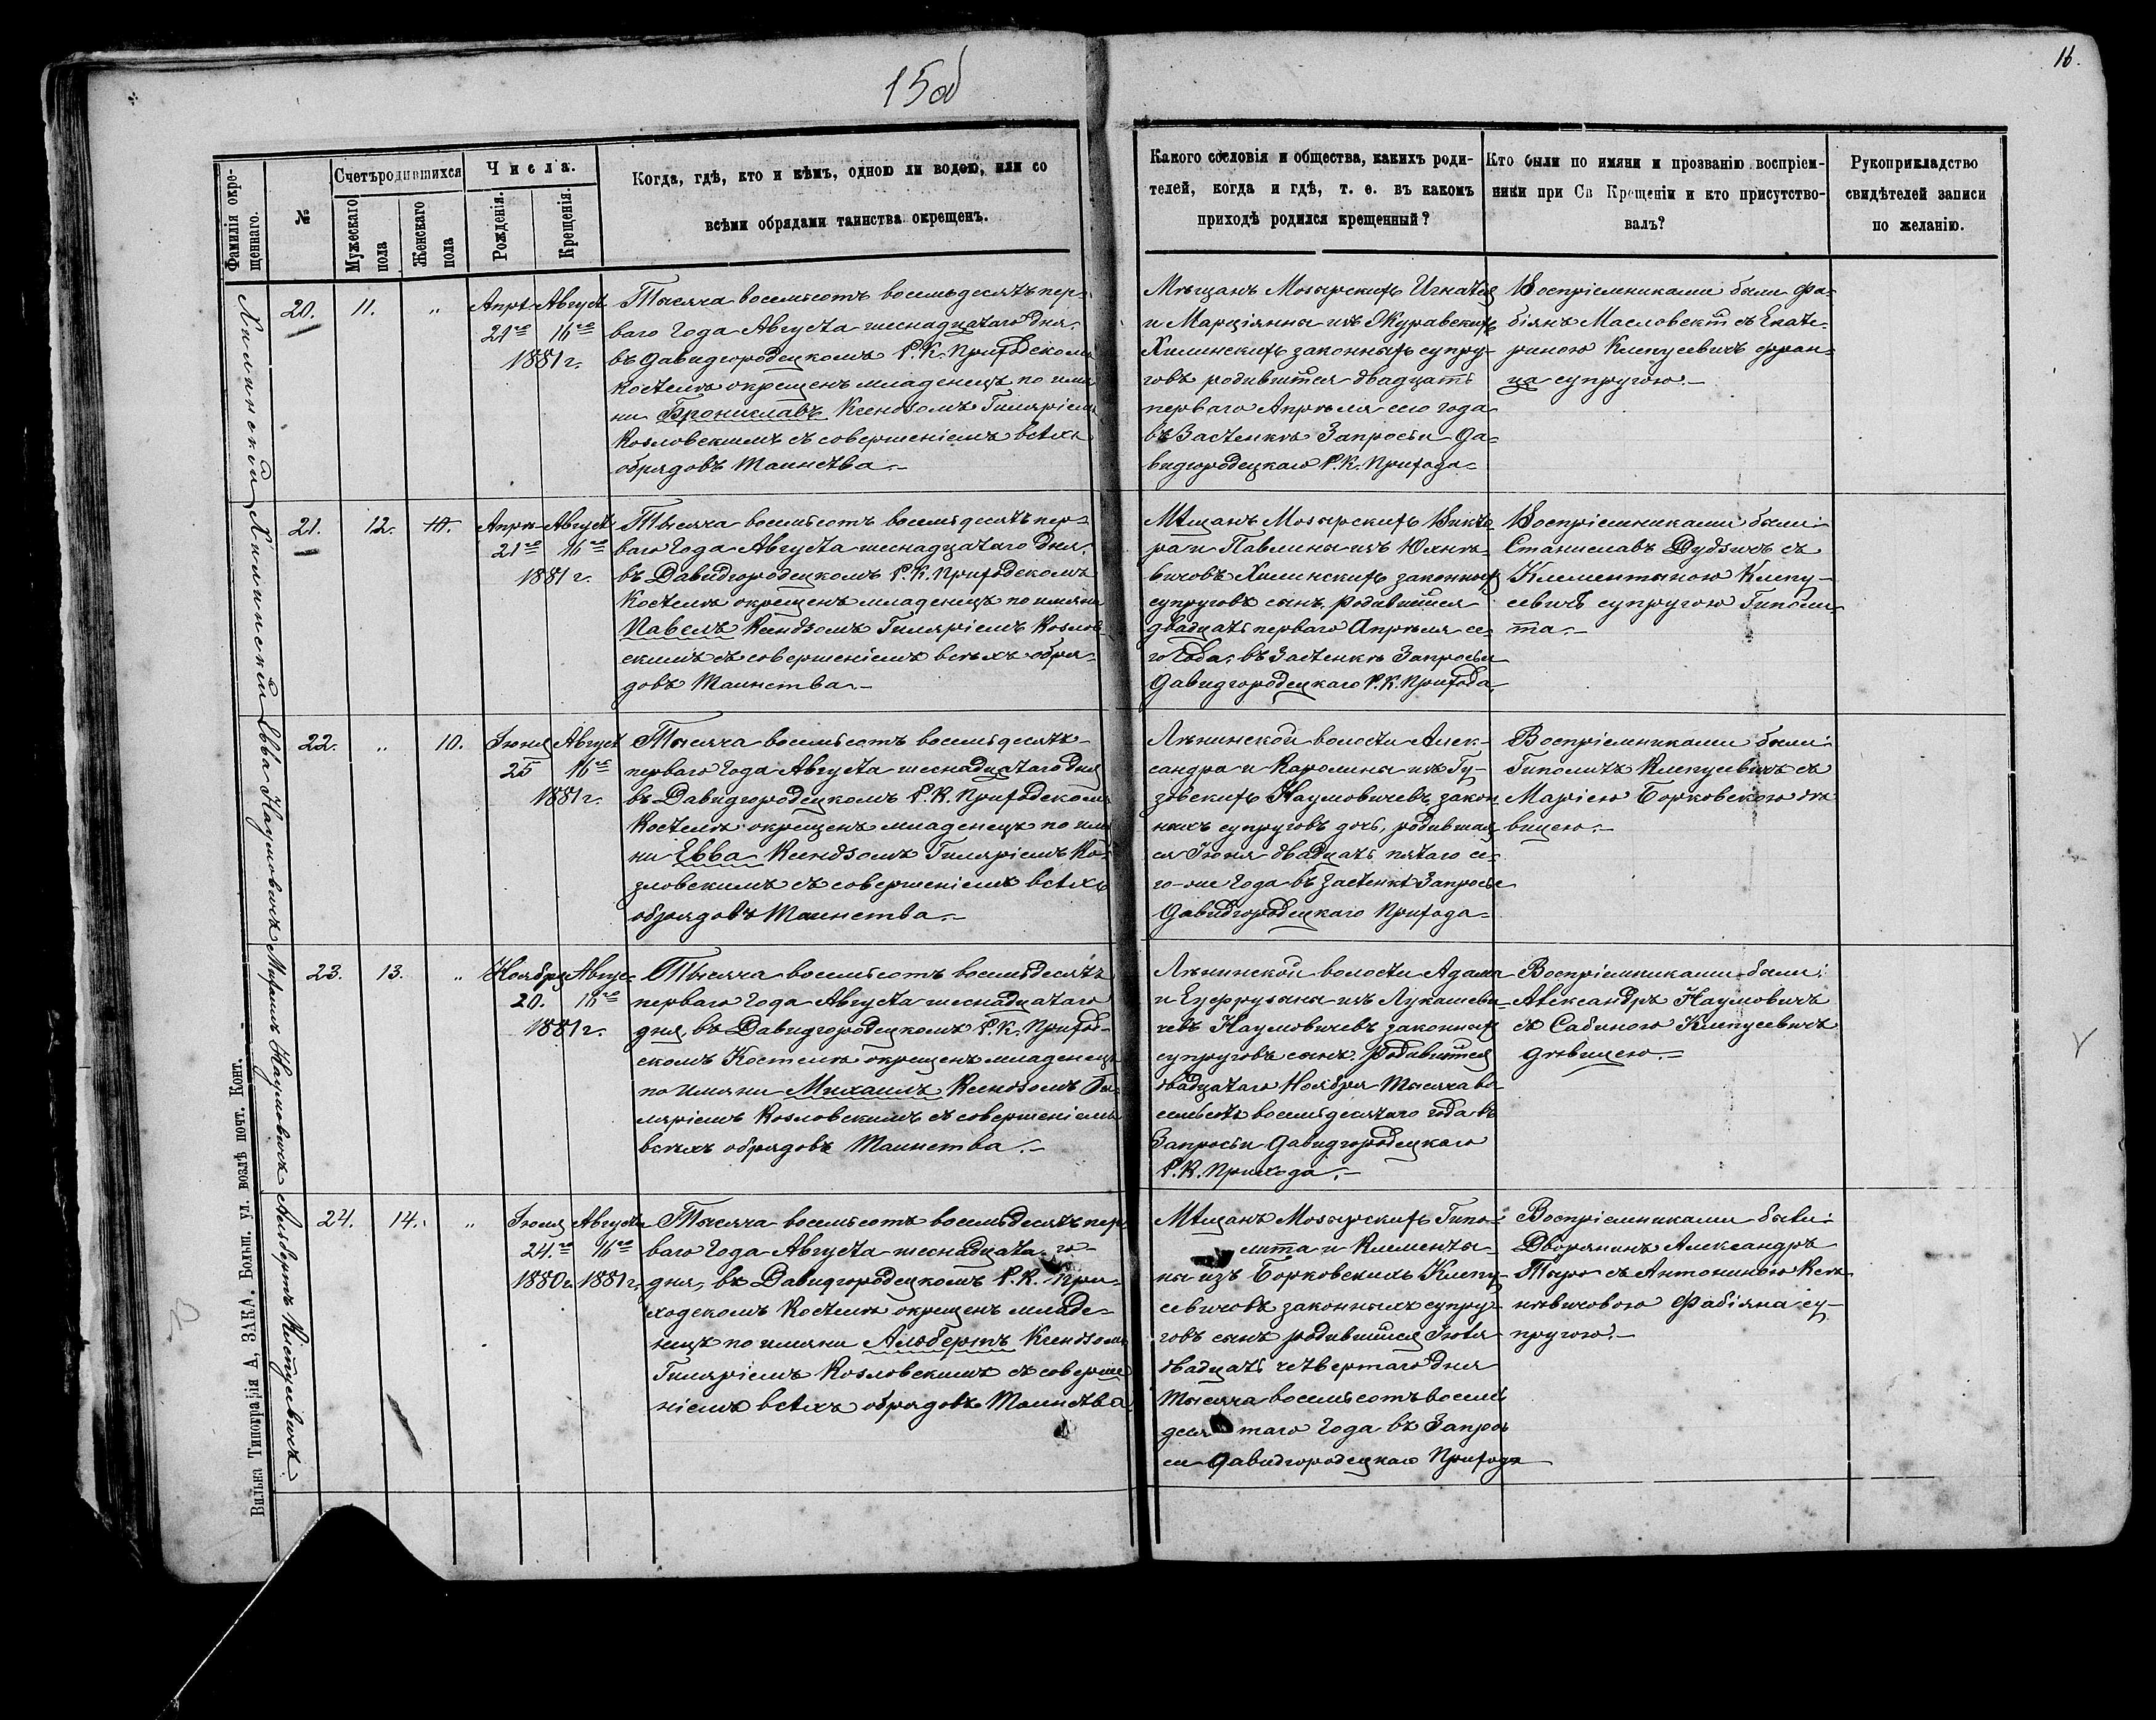 15об
16.
Фамилія окре-
щеннаго.
№
Счетъ родившихся
Мужескаго
пола
Женскаго
пола
Числа.
Рожденія.
Крещенія.
Когда, гдѣ, кто и кѣмъ, одною ли водою, или со
всѣми обрядами таинства окрещенъ.
Какого сословія и общества, какихъ роди-
телей, когда и гдѣ, т. е. въ какомъ
приходѣ родился крещенный?
Кто были по имяни и прозванію воспріем-
ники при Св Крещеніи и кто присутство-
валъ?
Рукоприкладство
свидѣтелей записи
по желанію.
Хилинскій
20.
11.
"
Апрѣ
21го
Августа
16го
1881 г.
Тысяча восемьсотъ восемьдесятъ пер-
ваго Года Августа шеснадцатаго дня,
въ Давидгородецкомъ Р. К. Приходскомъ
Костелѣ окрещенъ младенецъ по имя
ни Брониславъ Ксендзомъ Гиляріемъ
Козловскимъ съ совершеніемъ всѣхъ
обрядовъ Таинства.-
Мѣщанъ Мозырскихъ Игнатія
и Марціянны изъ Журавскихъ
Хилинскихъ законныхъ супру-
говъ родившійся двадцать
перваго Апрѣля сего года
въ Застенкѣ Запросьи Да-
видгородецкаго Р. К. Прихода-
Воспріемниками были Фа-
біянъ Масловскій съ Екате-
риною Клепусевичъ Фран-
ца супругою.-
Хилинскій
21.
12.
Апрѣ-
21го
Августа
16го
1881 г.
Тысяча восемьсотъ восемьдесятъ пер-
ваго Года Августа шеснадцатаго дня,
въ Давидгородецкомъ Р. К. Приходскомъ
Костелѣ окрещенъ младенецъ по имяни
Павелъ Ксендзомъ Гиляріемъ Козлов-
скимъ съ совершеніемъ всѣхъ обря-
довъ Таинства.-
Мѣщанъ Мозырскихъ Викто-
ра и Павлины изъ
Хилинскихъ законныхъ
супруговъ сынъ, родившійся
двадцать перваго Апрѣля се-
го Года, въ Застенкѣ Запросьи
Давидгородецкаго Р. К. Прихода.
Воспріемниками были:
Станиславъ Дудзичъ съ
Клементыною Клепу-
севичъ супругою Гиполи-
та.-
Евва Наумовичъ
22.
"
10.
Іюня
25
Август
16го
1881 г.
Тысяча восемьсотъ восемьдесятъ
перваго Года Августа шеснадцатаго дня
въ Давидгородецкомъ Р. К. Приходскомъ
Костелѣ окрещенъ младенецъ по имя
ни Евва Ксендзомъ Гиляріемъ Ко-
зловскимъ съ совершеніемъ всѣхъ
обрядовъ Таинства.-
Лѣнинской волости Алек-
сандра и Каролины изъ Гу-
зовскихъ Наумовичевъ закон-
ныхъ супруговъ дочь, родившая
ся Іюня двадцать пятаго се-
го-же Года въ Застенкѣ Запросье
Давидгородецкаго Прихода-
Воспріемниками были:
Гиполитъ Клепусевичъ съ
Маріею Борковскою дѣ
вицею.-
Михаилъ Наумовичъ
23.
13.
"
Ноября
20.
Авгус-
16го
1881 г.
Тысяча восемьсотъ восемьдесятъ
перваго Года Августа шеснадцатаго
дня въ Давидгородецкомъ Р. К. Приход-
скомъ Костелѣ окрещенъ младенецъ
по имяни Михаилъ Ксендзомъ Ги-
ляріемъ Козловскимъ съ совершеніемъ
всѣхъ обрядовъ Таинства.-
Лѣнинской волости Адама
и Еуфрузыны изъ Лукашеви-
чевъ Наумовичевъ законныхъ
супруговъ сынъ, родившійся
двадцатаго Ноября Тысяча во-
семьсотъ восемьдесятаго года въ
Запросьи Давидгородецкаго
Р. К. Прихода.-
Воспріемниками были:
Александръ Наумовичъ
съ Сабиною Клепусевичъ
дѣвицею.-
Альбертъ Клепусевичъ
24.
14.
"
Іюля
24го
1880 г.
Августа
16го
1881 г.
Тысяча восемьсотъ восемьдесятъ пер
ваго Года Августа шеснадцата-го-
дня, въ Давидгородецкомъ Р. К. При-
ходскомъ Костелѣ окрещенъ младе-
нецъ по имяни Альбертъ Ксендзомъ
Гиляріемъ Козловскимъ съ соверше
ніемъ всѣхъ обрядовъ Таинства.
Мѣщанъ Мозырскихъ Гипо-
лита и Клименты-
ны изъ Борковскихъ Клепу-
севичовъ законныхъ супру-
говъ сынъ родившійся Іюля
двадцать четвертаго дня
Тысяча восемьсотъ восемь
десятаго Года въ Запрось
еи Давидгородецкаго Прихода
Воспріемниками были:
Дворянинъ Александръ
съ Антониною
Фабіяна су-
пругою.-
Вильна Типографія А, ЗАКА. Больш. ул. возлѣ почт. Конт.